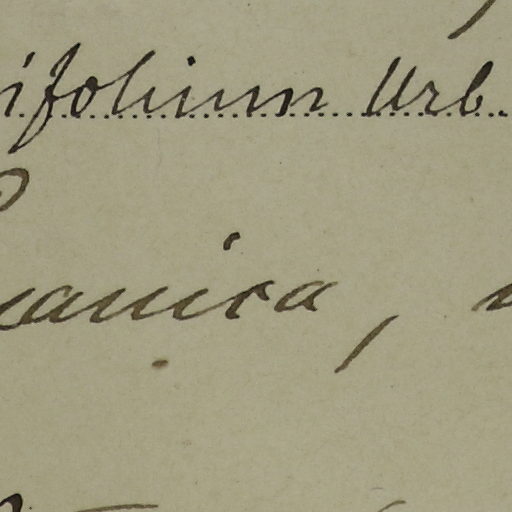 ifolium Urb.
anica,